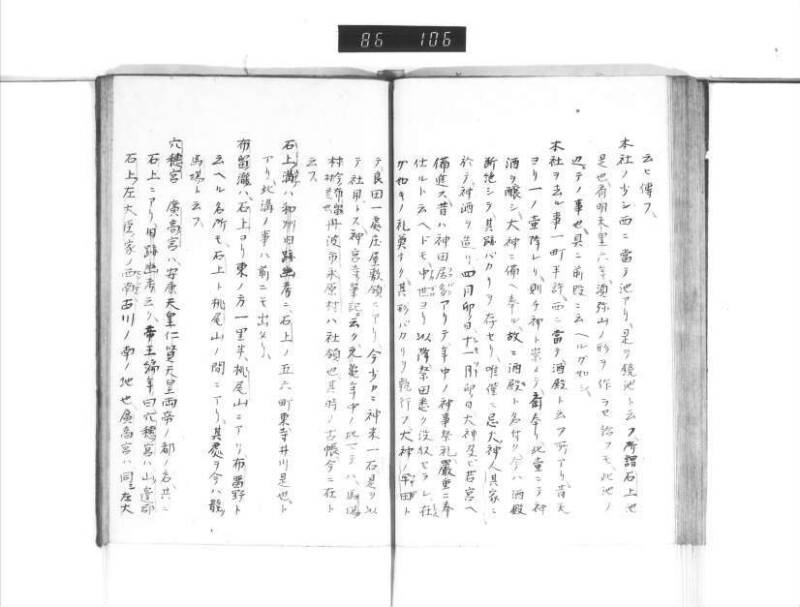 86 106
云ヒ傳フ、
本社ノ少シ西ニ當テ池アリ、是ヲ鏡池ト云フ、所謂石上池
是也、斉明天皇六年須弥山ノ形ヲ作ラセ給フモ、此池ノ
辺ノ事也、具ニ前段ニ云ヘルガ如シ、
本社ヲ去ル事一町半許、西ニ當テ酒殿ト云フ所アリ、昔天
ヨリ一ノ壷降レリ、則チ神ト崇メテ斎奉リ、此壷ニテ神
酒ヲ醸シ、大神ニ備ヘ奉ル、故ニ酒殿ト名付ク、今ハ酒殿
断絶シテ其跡バカリヲ存セリ、唯僅ニ忌火神人其家ニ
於テ神酒ヲ造リ、四月卯日十一月卯日大神及ビ若宮ヘ
備進ス、昔ハ神田居多アリテ、年中ノ神事祭礼厳重ニ奉
仕ルト云ヘドモ、中世ヨリ以降祭田悉ク没収セラレ、在
ガ如キノ礼奠ナク、其形バカリヲ執行フ、大神ノ御田ト
テ良田一處庄屋敷領ニアリ、今少カニ神米一石是ヲ以
テ社用トス、神宮寺筆記ニ云ク、元亀年中ノ比マテハ、馬場
村今布留是也丹波市木原村ハ社領也、其時ノ古帳今ニ在ト
云フ、
石上溝ハ和州旧跡幽考ニ、石上ノ五六町東寺井川是也、ト
アリ、此溝ノ事ハ前ニモ出セリ、
布留瀧ハ石上ヨリ東ノ方一里半、桃尾山ニアリ、布留野ト
云ヘル名所モ、石上ト桃尾山ノ間ニアリ、其處ヲ今ハ龍
馬場ト云フ、
穴穂宮 廣高宮ハ安康天皇仁賢天皇両帝ノ都ノ名、共ニ
石上ニアリ、旧跡幽考云ク、帝王編年曰穴穂宮ハ山邊郡
石上左大臣家ノ西南、古川ノ南ノ地也、廣高宮ハ同シ左大